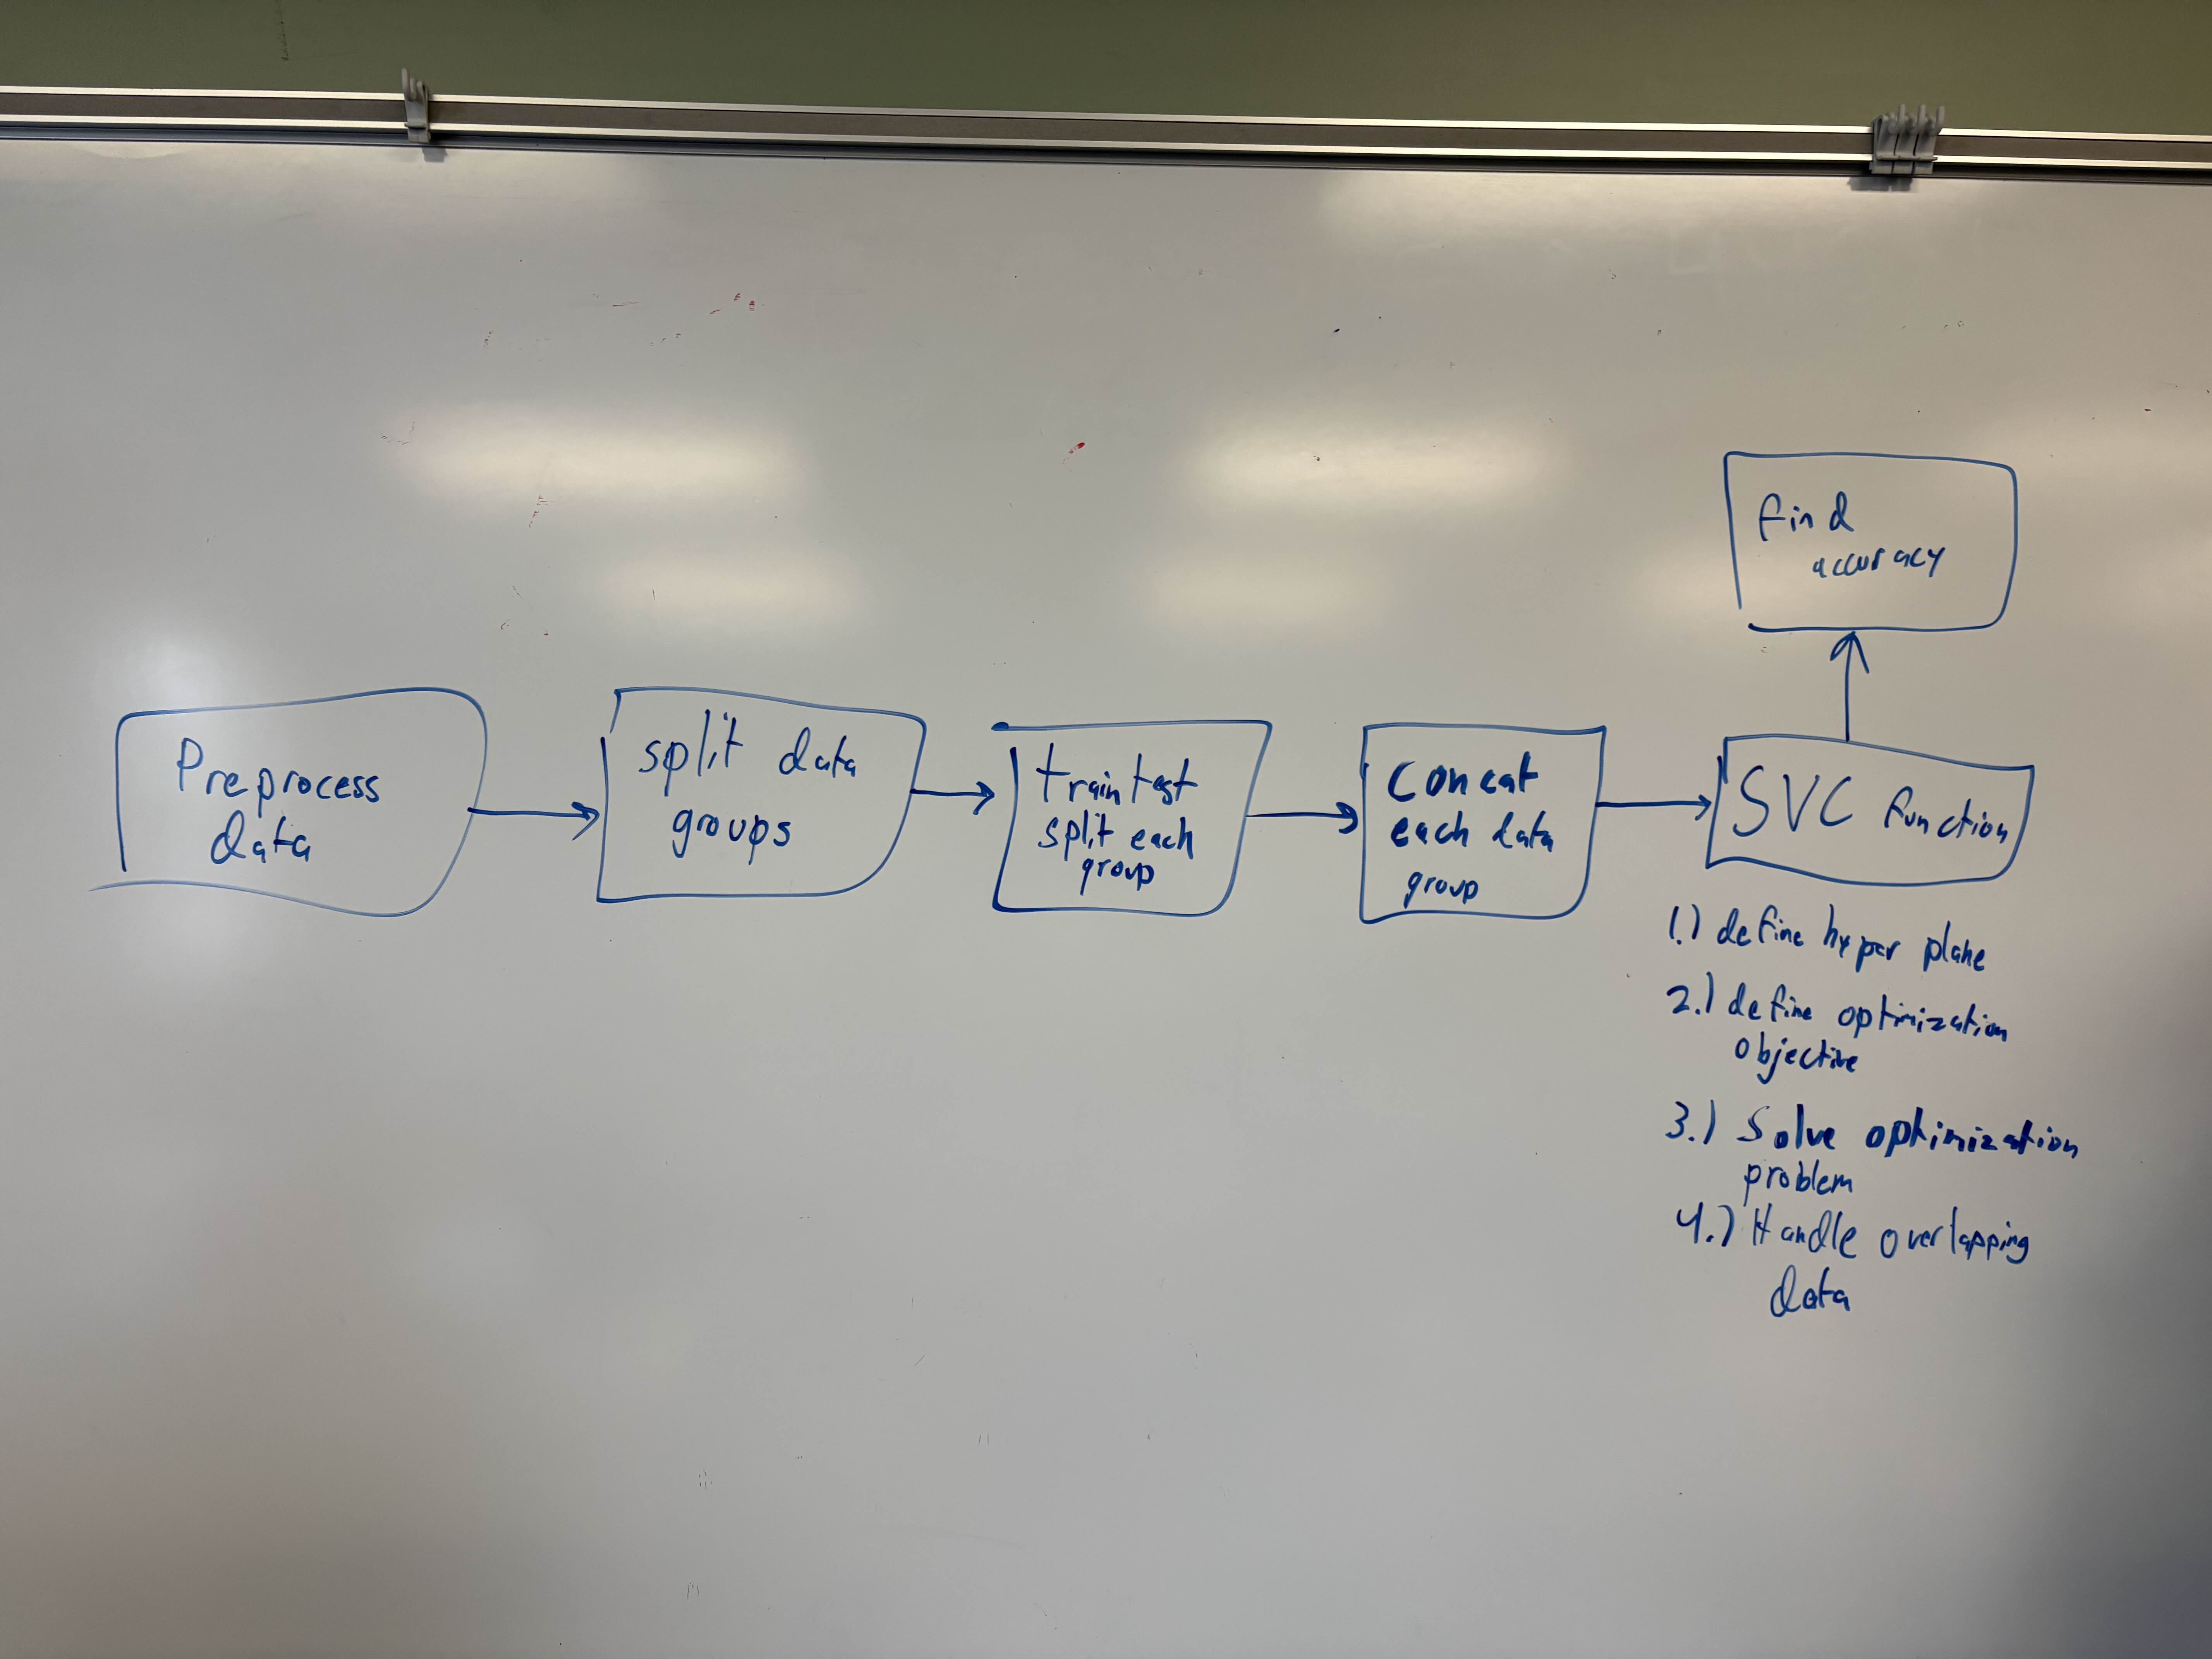 Preprocess
data
split data
groups
train test
split each
group
Concat
each data
group
SVC function
find
accuracy
1.) define hyper plane
2.) define optimization
objective
3.) Solve optimization
problem
4.) Handle overlapping
data